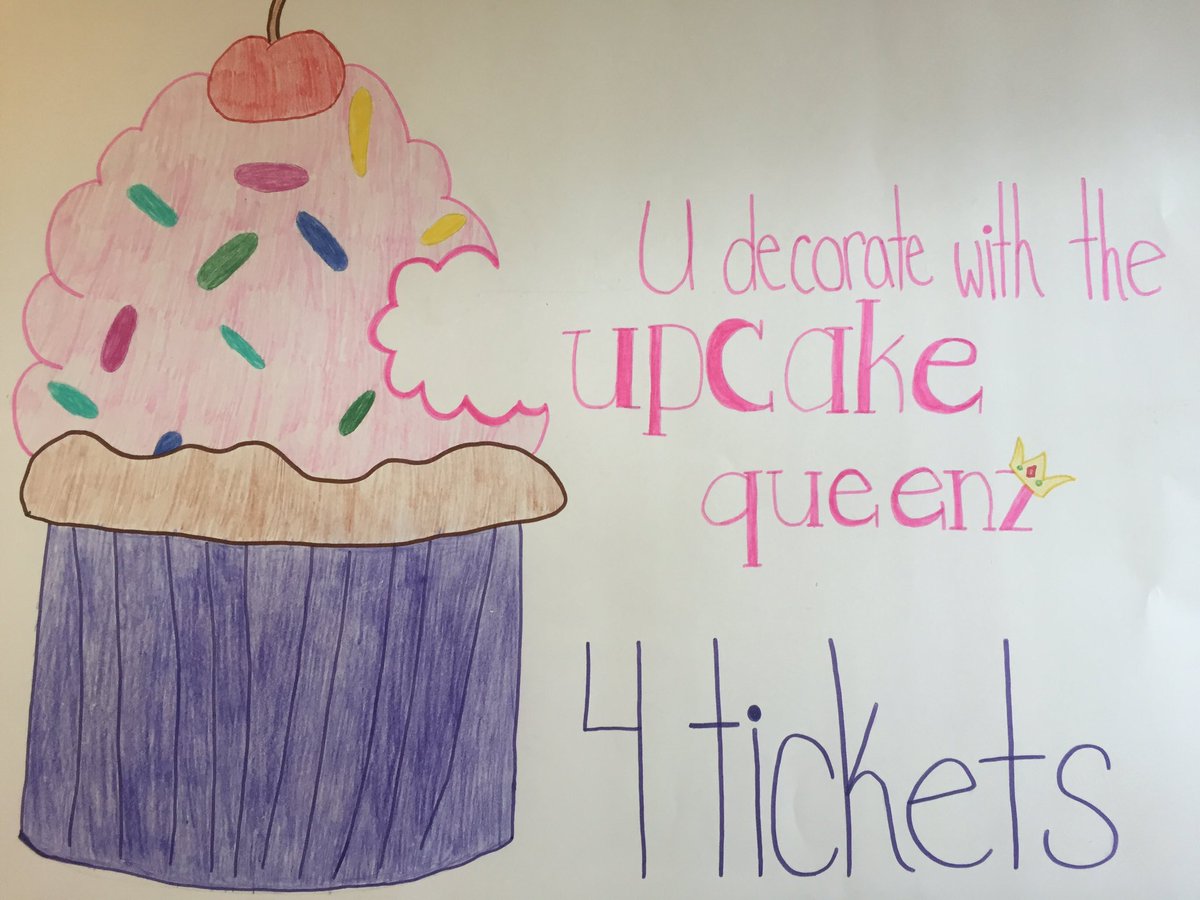 U decorate with the
upcake
queenz
4 tickets